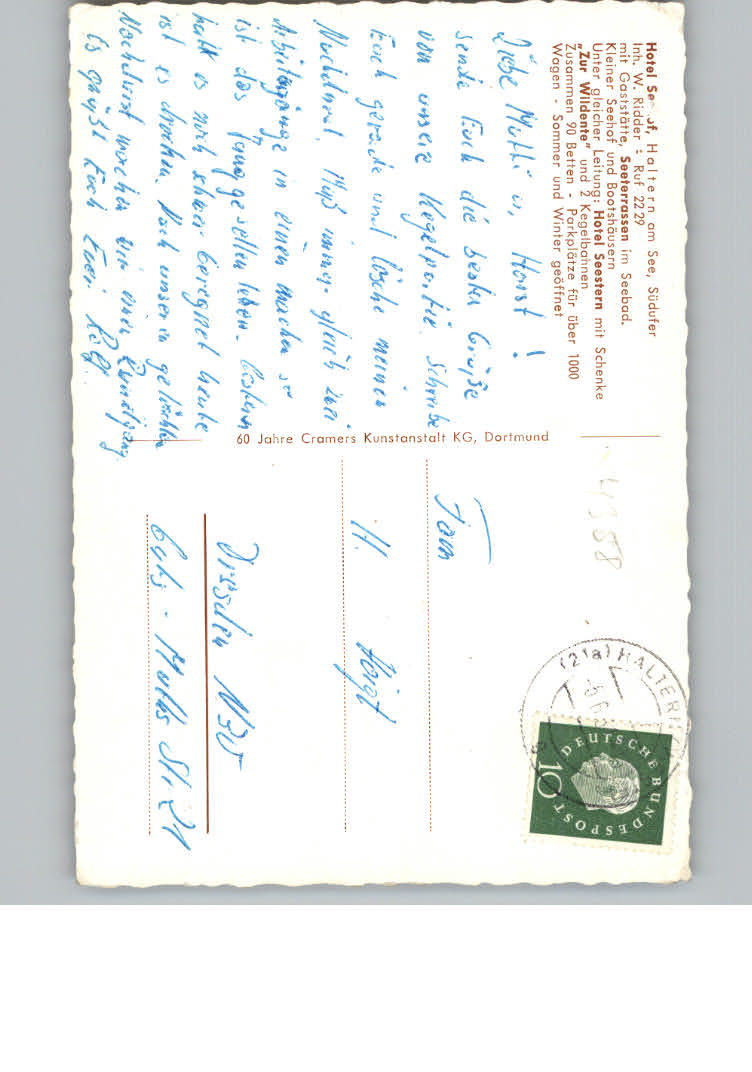 Hotel Seehof, Haltern am See, Südufer
Inh. W. Ridder - Ruf 22 29
mit Gaststätte, Seeterrassen im Seebad.
Kleiner Seehof und Bootshäusern
Unter gleicher Leitung: Hotel Seestern mit Schenke
„Zur Wildente" und 2 Kegelbahnen
Zusammen 90 Betten - Parkplätze für über 1000
Wagen - Sommer und Winter geöffnet
Liebe Mutti u. Horst!
sende Euch die besten Grüße
von unsere Kegelpartie. Schreibe
Euch gerade und lösche meinen
Nachdurst. Muß immer gleich zwei
in einen machen so
ist das Junggesellen leben. Gestern
hatt es noch schwer geregnet heute
ist es trocken. Nach unseren gelöschten
Nachdurst machen wir einen Rundgang.
Es grüßt Euch Euer Rolf
60 Jahre Cramers Kunstanstalt KG, Dortmund
Fam
H. Voigt
Dresden N30
Str 21
(21a) HALTERN
DEUTSCHE BUNDESPOST
10